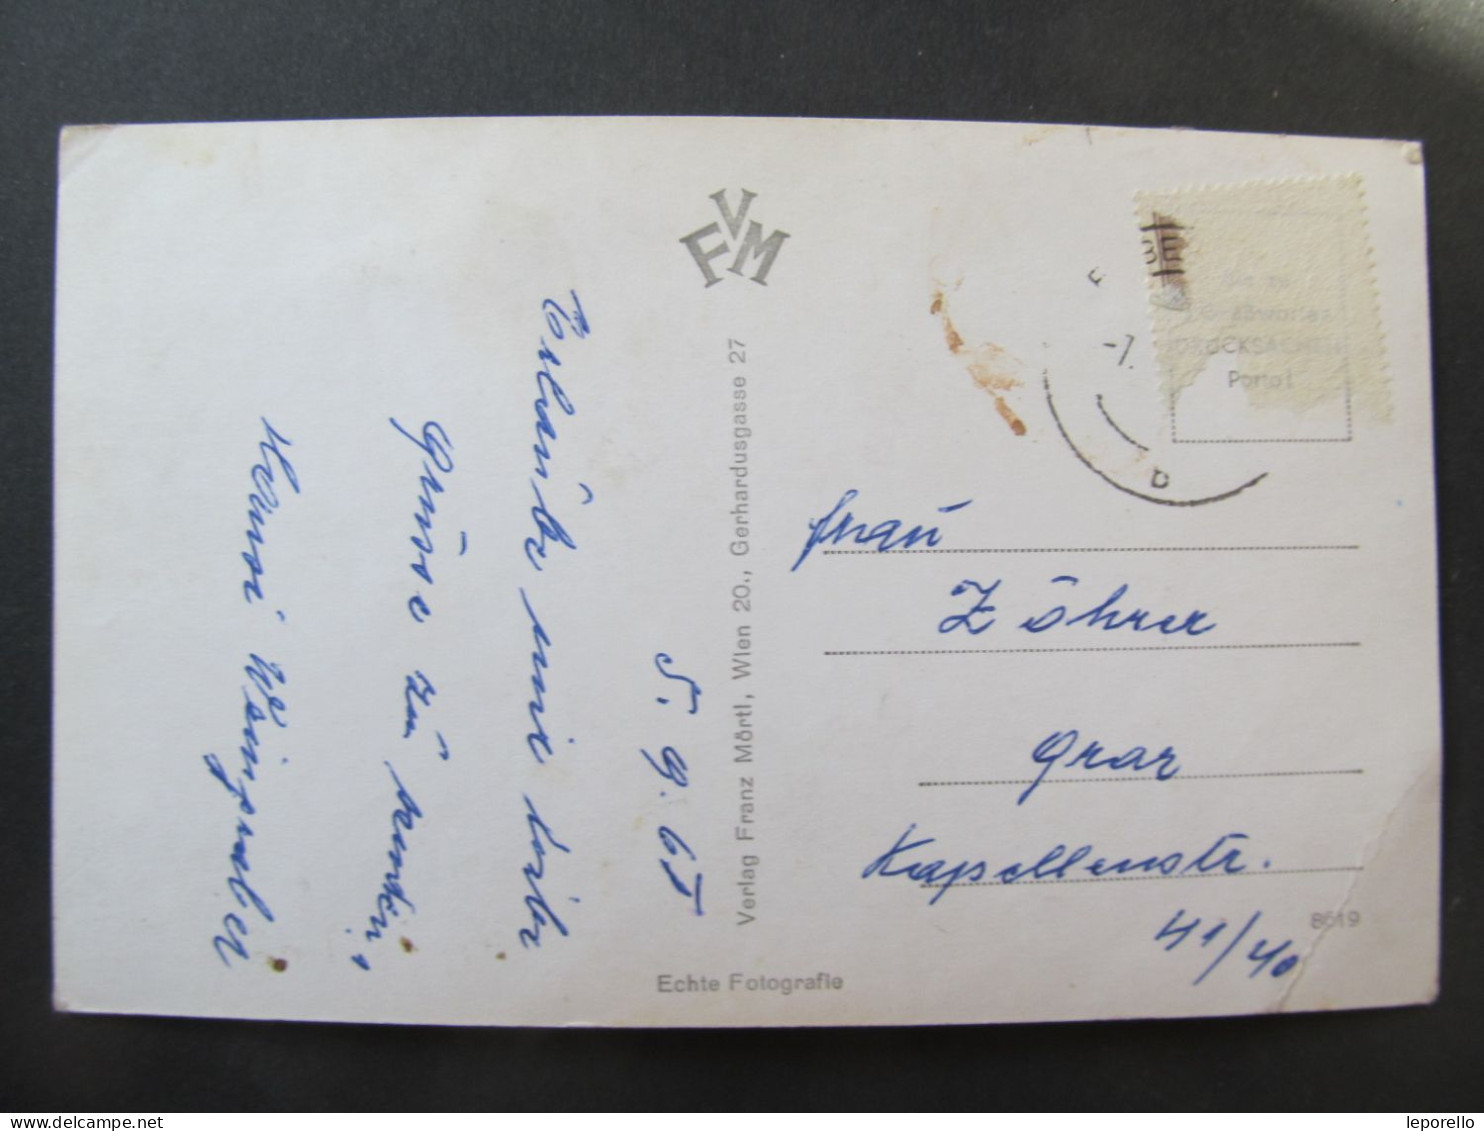 5. 9. 65
Erlaube mir liebe
Grüsse zu senden,
FVM
Verlag Franz Mörtl, Wien 20., Gerhardusgasse 27
Echte Fotografie
-7.
DRUCKSACHEN
Porto!
Frau
Zöhrer
Graz
Kapellenstr.
41/40
8619
leporello